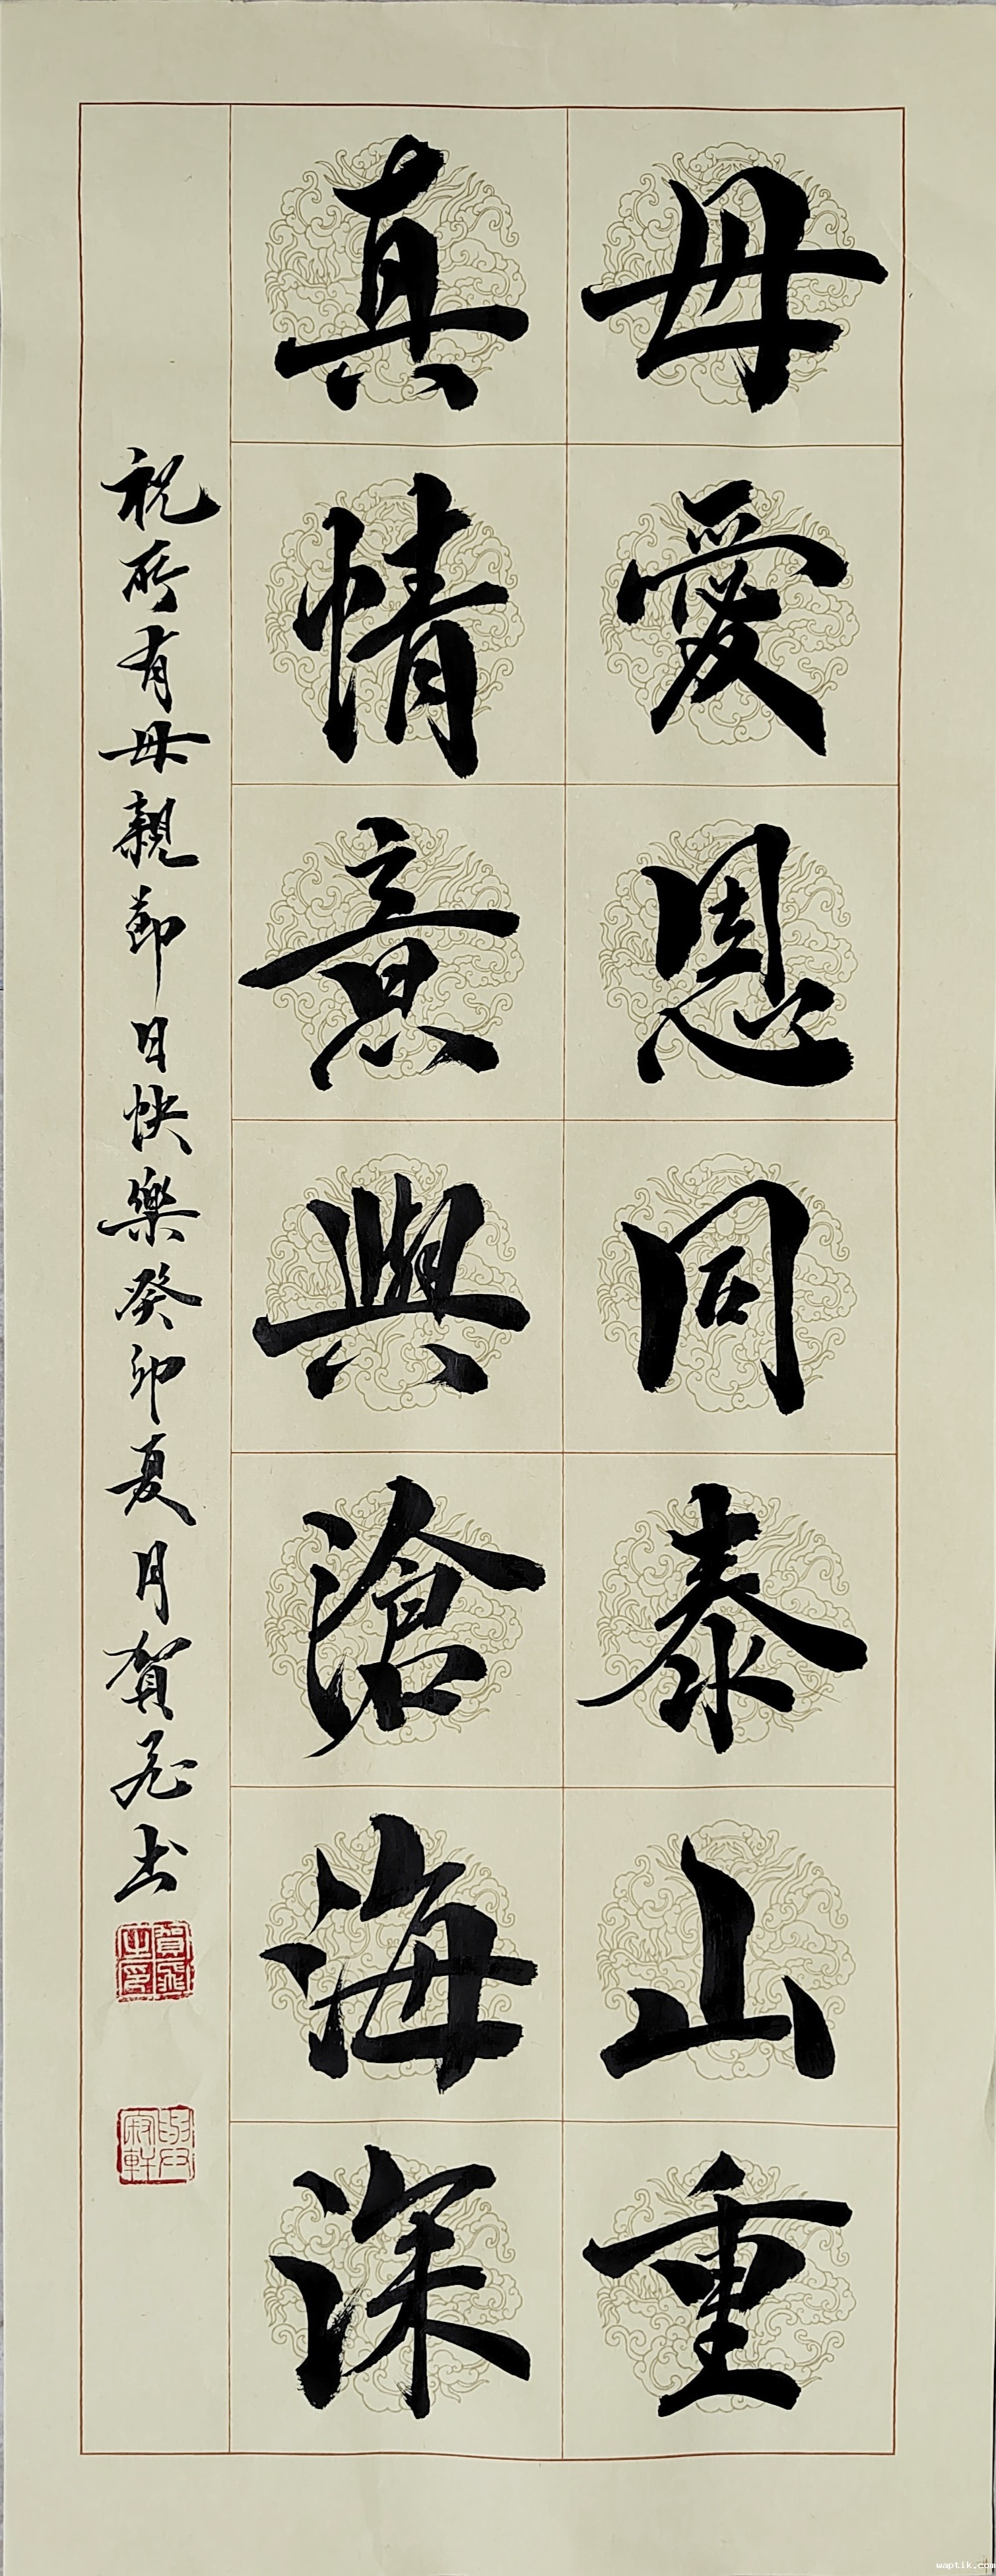 母愛恩同泰山重
真情意與滄海深
祝所有母親節日快樂癸卯夏月賀飛书
賀飛之印
waptik.com